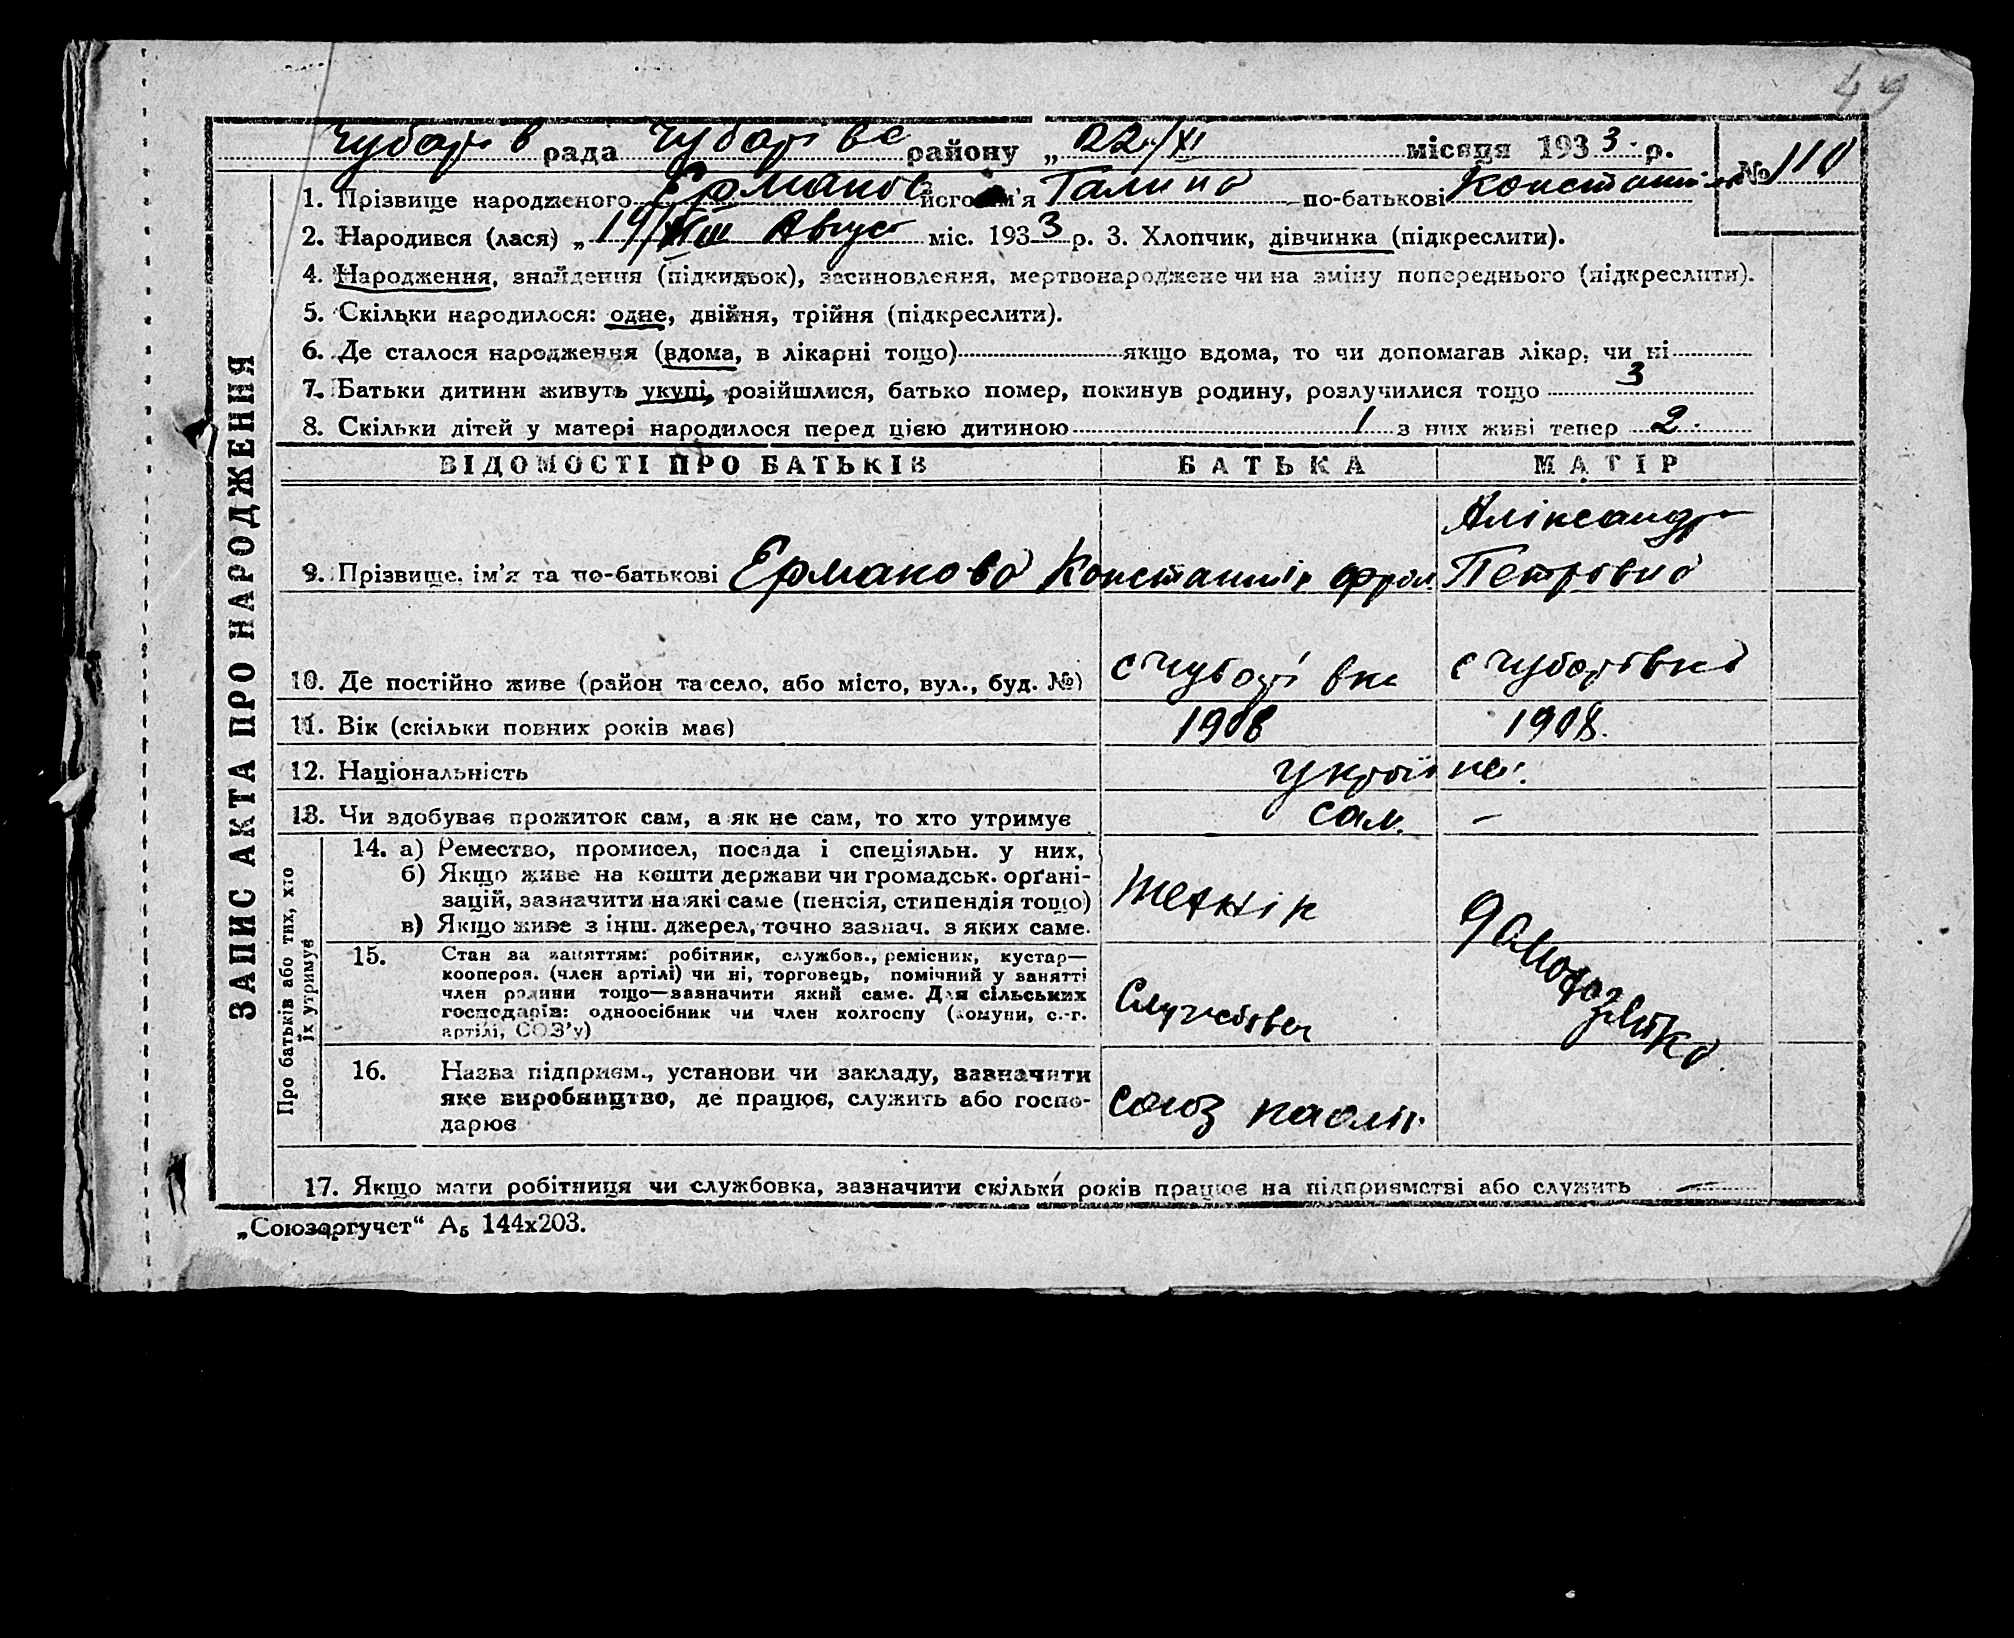 49
Чубарів рада Чубарівс району „ 22/XI місяця 1933 р. № 110
1. Прізвище народженого Ерманов його ім'я Галина по-батькові
2. Народився (лася) „ 19/VIII Август міс. 1933 р. 3. Хлопчик, дівчинка (підкреслити).
4. Народження, знайдення (підкидьок), засиновлення, мертвонароджене чи на зміну попереднього (підкреслити).
5. Скільки народилося: одне, двійня, трійня (підкреслити).
6. Де сталося народження (вдома, в лікарні тощо) якщо вдома, то чи допомагав лікар, чи ні
7. Батьки дитини живуть укупі, розійшлися, батько помер, покинув родину, розлучилися тощо 3
8. Скільки дітей у матері народилося перед цією дитиною 1 з них живі тепер 2
ВІДОМОСТІ ПРО БАТЬКІВ БАТЬКА МАТІР
Аліксандра
9. Прізвище, ім'я та по-батькові Ерманова Константін Петровна
10. Де постійно живе (район та село, або місто, вул., буд. №) с Чубарівка с Чубарівка
11. Вік (скільки повних років має) 1908 1908.
12. Національність україн
13. Чи здобуває прожиток сам, а як не сам, то хто утримує сам. –
Про батьків або тих, хто їх утримує
14. а) Ремество, промисел, посада і спеціяльн. у них,
б) Якщо живе на кошти держави чи громадськ. орґані-
зацій, зазначити на які саме (пенсія, стипендія тощо)
в) Якщо живе з інш. джерел, точно зазнач. з яких саме.
технік
домохазяйка
15. Стан за заняттям: робітник, службов., ремісник, кустар—
коопероa. (член артілі) чи ні, торговець, помічний у занятті
член родини тощо—зазначити який саме. Для сільських
господарів: одноосібник чи член колгоспу (комуни, с.-г.
артілі, СОЗ'у)
Службовец
16. Назва підприєм., установи чи закладу, зазначити
яке виробництво, де працює, служить або госпо-
дарює
союз
17. Якщо мати робітниця чи службовка, зазначити скільки років працює на підприємстві або служить –
ЗАПИС АКТА ПРО НАРОДЖЕННЯ
„Союзоргучет“ А₅ 144х203.